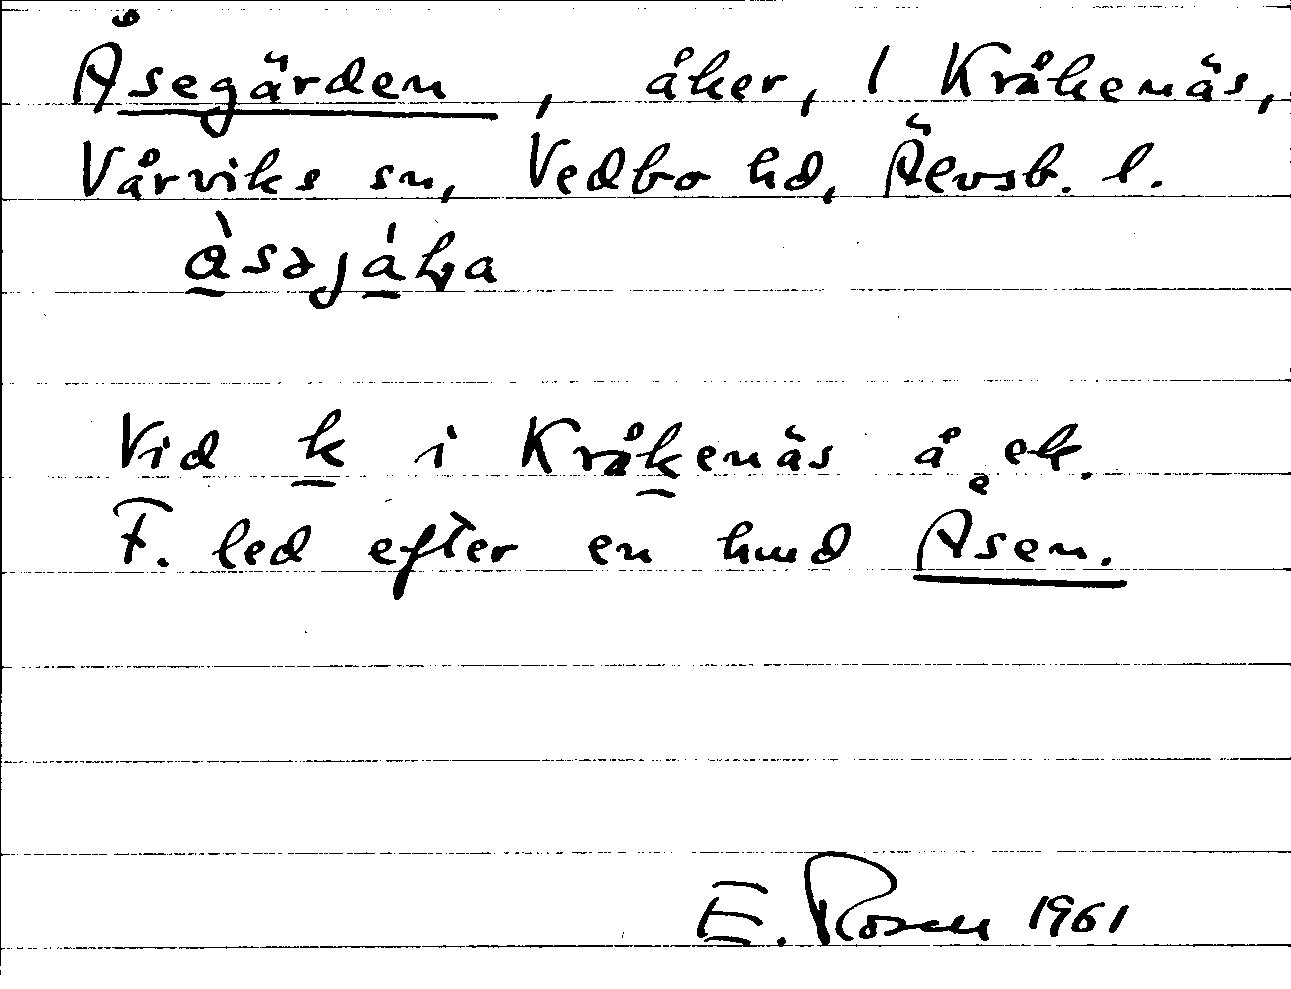 Åsegärden, åker, 1 Kråkenäs,
Vårviks sn, Vedbo hd, Älvsb. l.
Vid k i Kråkenäs å ek.
F. led efter en hund Åsen.
E. Rosen 1961